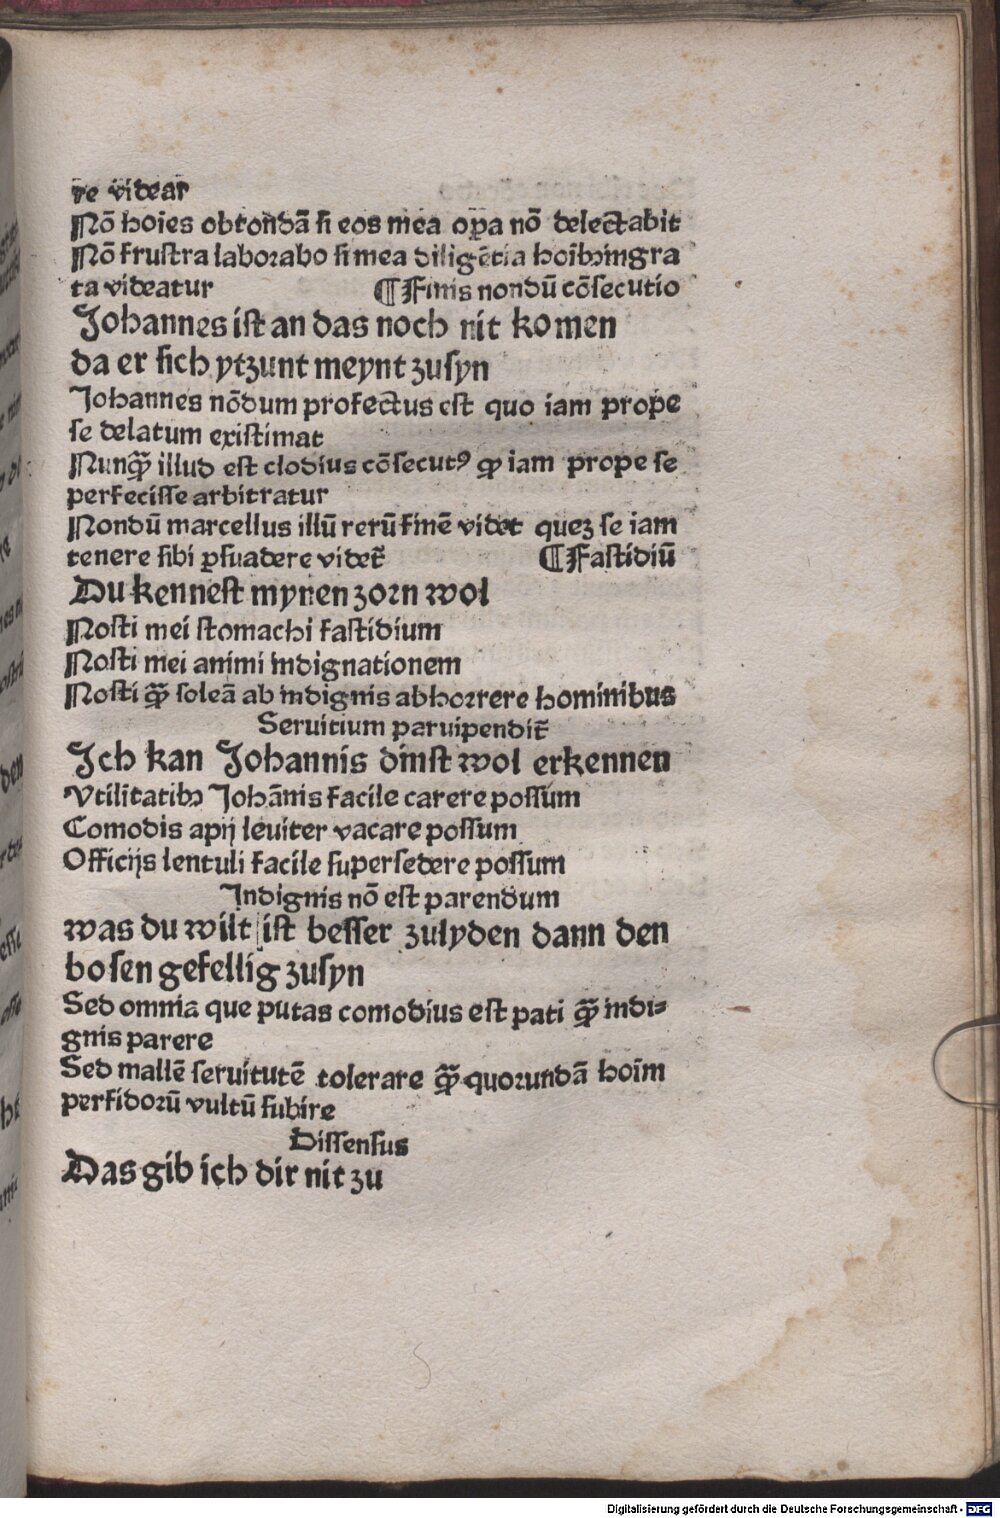 re videar
Nō hoīes obtondā ſi eos mea oꝑa nō delectabit
Nō fruſtra laborabo ſi mea diligētia hoībꝫ ingra
ta videatur ¶Finis nondū cōſecutio
Johannes iſt an das noch nit komen
da er ſich ytzunt meynt zuſyn
Johannes nōdum profectus eſt quo iam prope
ſe delatum exiſtimat
Nunꝙ̄ illud eſt clodius cōſecutꝰ ꝙ iam prope ſe
perfeciſſe arbitratur
Nondū marcellus illū rerū finē videt quez ſe iam
tenere ſibi ꝑſuadere videt᷑ ¶Faſtidiū
Du kenneſt mynen zorn wol
Noſti mei ſtomachi faſtidium
Noſti mei animi indignationem
Noſti ꝙ̄ ſoleā ab indignis abhorrere hominibus
Seruitium paruipendit᷑
Ich kan Johannis dinſt wol erkennen
Vtilitatibꝫ Johānis facile carere poſſum
Comodis apij leuiter vacare poſſum
Officijs lentuli facile ſuperſedere poſſum
Indignis nō eſt parendum
was du wilt iſt beſſer zulyden dann den
boſen gefellig zuſyn
Sed omnia que putas comodius eſt pati ꝙ̄ indi⸗
gnis parere
Sed mallē ſeruitutē tolerare ꝙ̄ quorundā hoīm
perfidorū vultū ſubire
Diſſenſus
Das gib ich dir nit zu
Digitalisierung gefördert durch die Deutsche Forschungsgemeinschaft - DFG